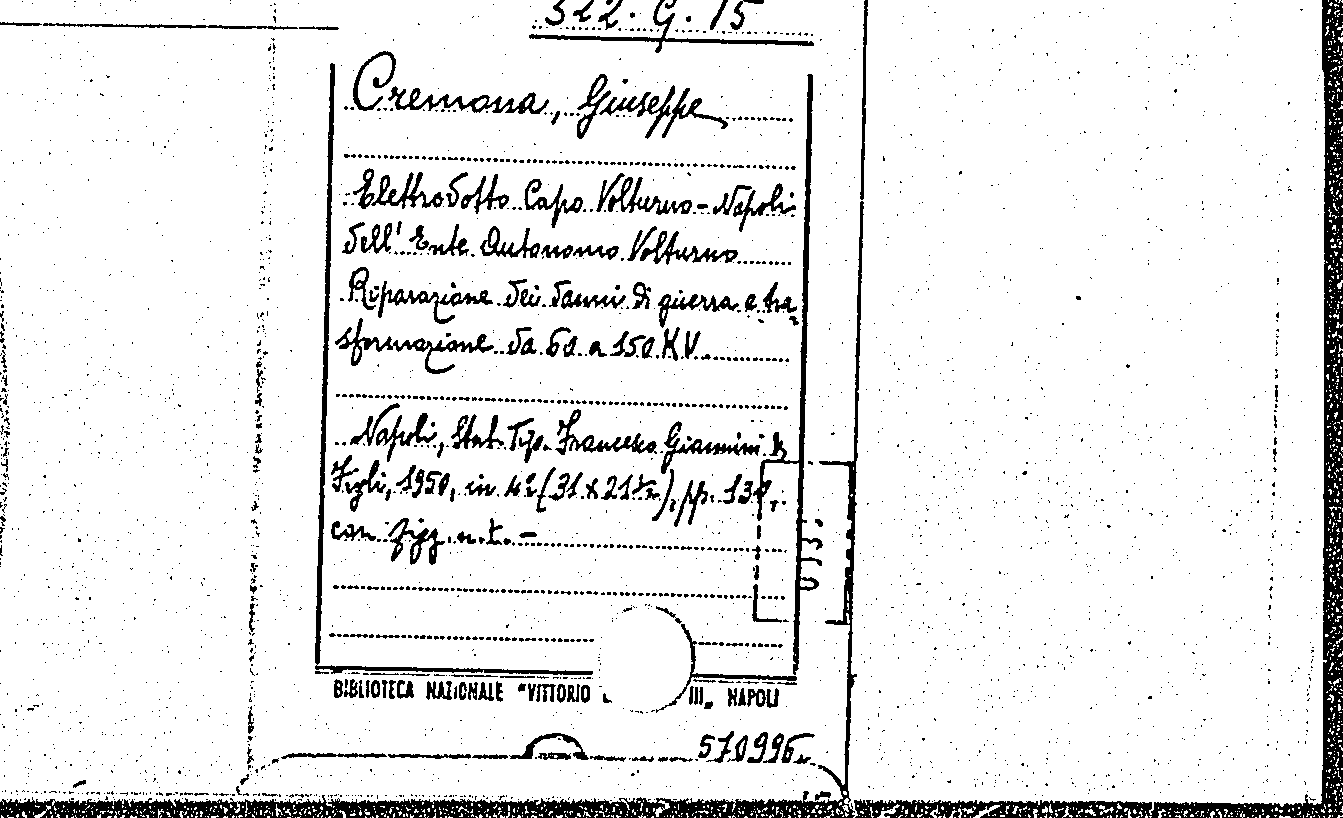 322. G. 15
Cremona, Giuseppe
Elettrodotto Capo Volturno - Napoli
dell' Ente Autonomo Volturno
Riparazione dei danni di guerra e tra-
sformazione da 60 a 150 KV.
Napoli, Stab. Tip. Francesco Giannini &
Figli, 1950, in 4º (31 x 21 ½), pp. 137,
con figg. n. t. -
BIBLIOTECA NAZIONALE "VITTORIO III„ NAPOLI
570996